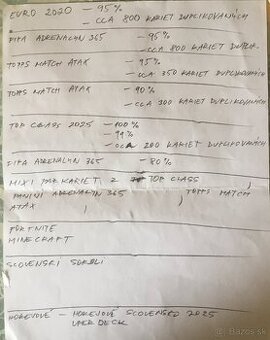 EURO 2020 - 95%
- CCA 800 KARIET DUPLIKOVANÝCH
FIFA ADRENALYN 365 - 95%
- CCA 800 KARIET DUPLIK.
TOPPS MATCH ATAX - 95%
- CCA 350 KARIET DUPLIKOVANÝCH
TOPPS MATCH ATAX - 90%
- CCA 100 KARIET DUPLIKOVANÝCH
TOP CLASS 2025 - 100%
- 99%
- CCA 200 KARIET DUPLIKOVANÝCH
FIFA ADRENALYN 365 - 80%
MIXI KARIET Z TOP CLASS )
PANINI ADRENALYN 365 ) TOPPS MATCH
ATAX )
FORTNITE
MINECRAFT
SLOVENSKI SOKOLI
HOKEJOVÉ - HOKEJOVÉ SLOVENSKO 2025
UPER DECK
Bazos.sk